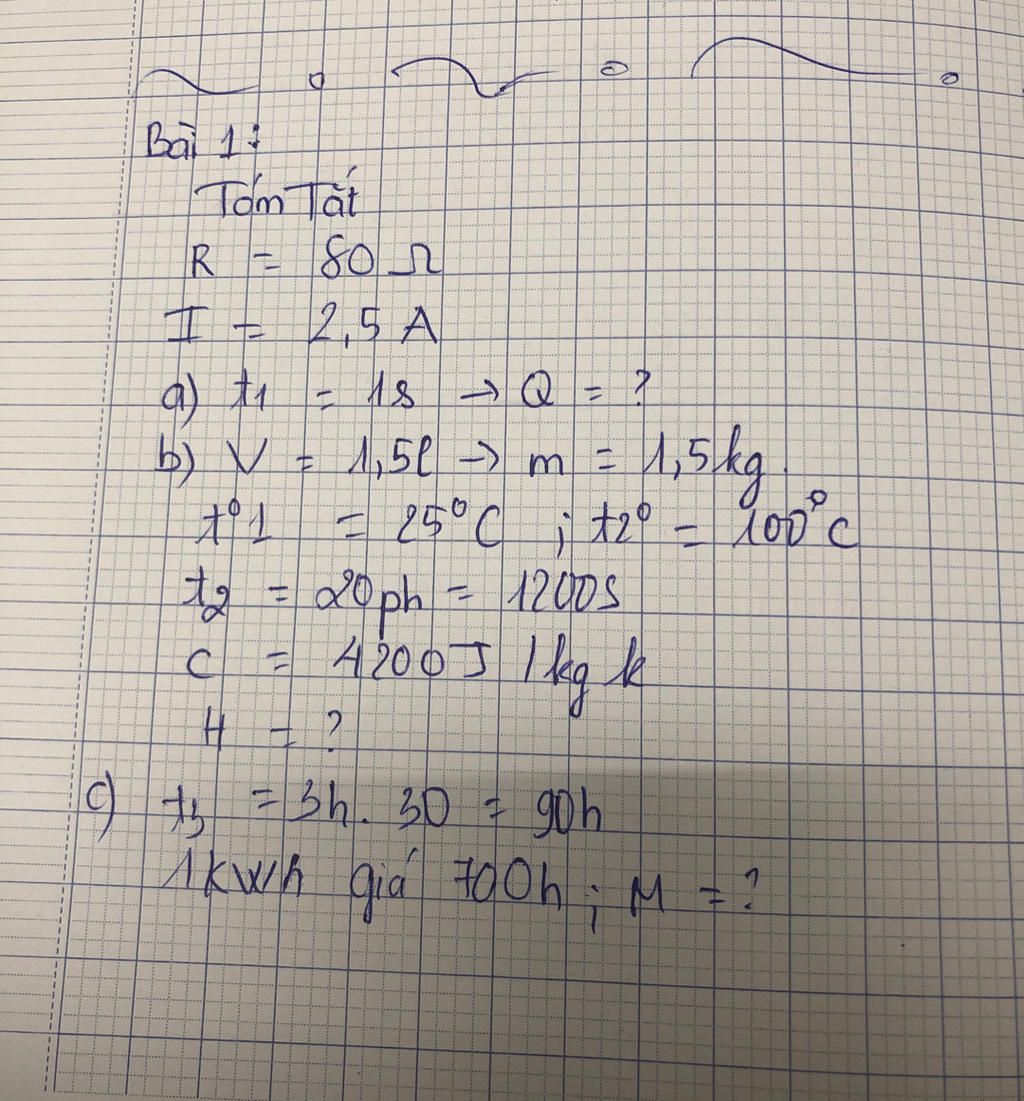 Bài 1:
Tóm Tắt
R = 80 Ω
I = 2,5 A
a) t1 = 1s → Q = ?
b) V = 1,5l → m = 1,5kg.
t°1 = 25°C ; t2° = 100°C
t2 = 20ph = 1200s
C = 4200J / kg k
H = ?
c) t3 = 3h. 30 = 90h
1kWh giá 700h ; M = ?